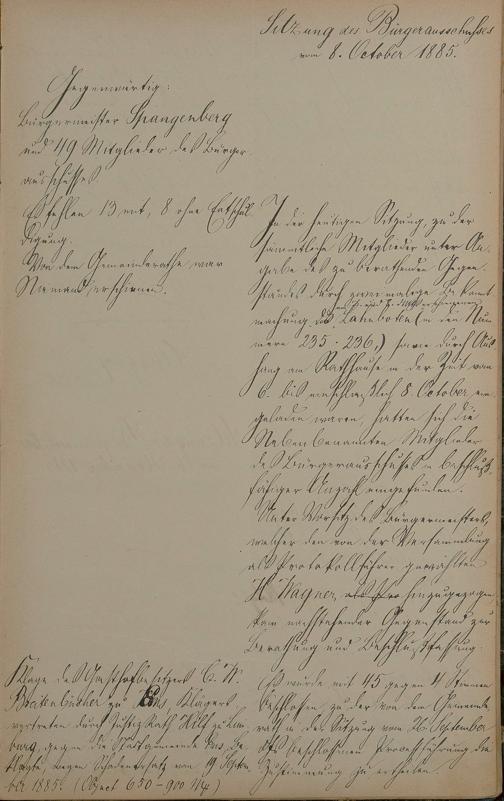 Sitzung des Bürgerausschusses
vom 8. October 1885.
Gegenwärtig:
Bürgermeister Spangenberg
und 49 Mitglieder des Bürger-
ausschusses
Es fehlen 13 mit, 8 ohne Entschul-
digung.
Von dem Gemeinderathe war
Niemand erschienen.
In der heutigen Sitzung, zu der
sämmtliche Mitglieder unter An-
gabe des zu berathenden Gegen-
standes durch zweimalige Bekannt-
machung des Lahnboten (in den Num-
mern 235 - 236,) sowie durch Aus-
hang am Rathhause in der Zeit vom
6. bis einschließlich 8. October, ein-
geladen waren, hatten sich die
Nebenbenannten Mitglieder
des Bürgerausschusses in beschluß-
fähiger Anzahl eingefunden.
Unter Vorsitz des Bürgermeisters,
welcher den von der Versammlung
als Protokollführer gewählten
H. Wagner, hinzugezogen,
kam nachstehender Gegenstand zur
Berathung und Beschlußfassung.
Klage des Geschäftsbesitzers C. W.
zu Ems, Klägers
vertreten durch Justizrath Hilf zu Lim-
burg, gegen die Stadtgemeinde Ems, Be-
klagte, wegen Schadenersatz vom 19. Septem-
ber 1885. (Object 650-900 Mk)
Es wurde mit 45 gegen 4 Stimmen
beschlossen, zu der von dem Gemeinde-
rath in der Sitzung vom 26. September
beschlossenen Prozeßführung die
Zustimmung zu ertheilen.